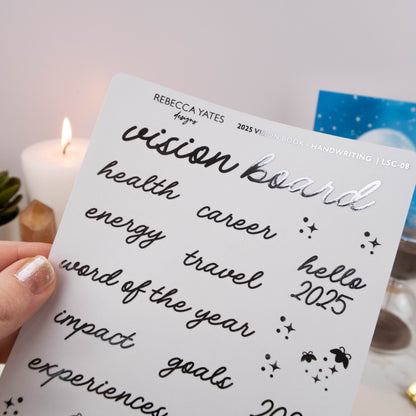 REBECCA YATES
designs
2025 VISION BOOK - HANDWRITING | LSC-08
vision board
health career
energy travel hello
word of the year 2025
impact goals
experiences